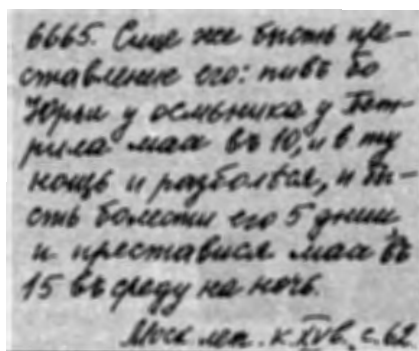 6665. Сице же бысть пре-
ставление его: пивъ бо
Юрьи у осмьника у Пет-
рила маа въ 10, и в ту
нощь и разболѣся, и бы-
сть болести его 5 днии
и преставися маа въ
15 въ среду на ночь.
Моск. леп. к. XV в., с. 62